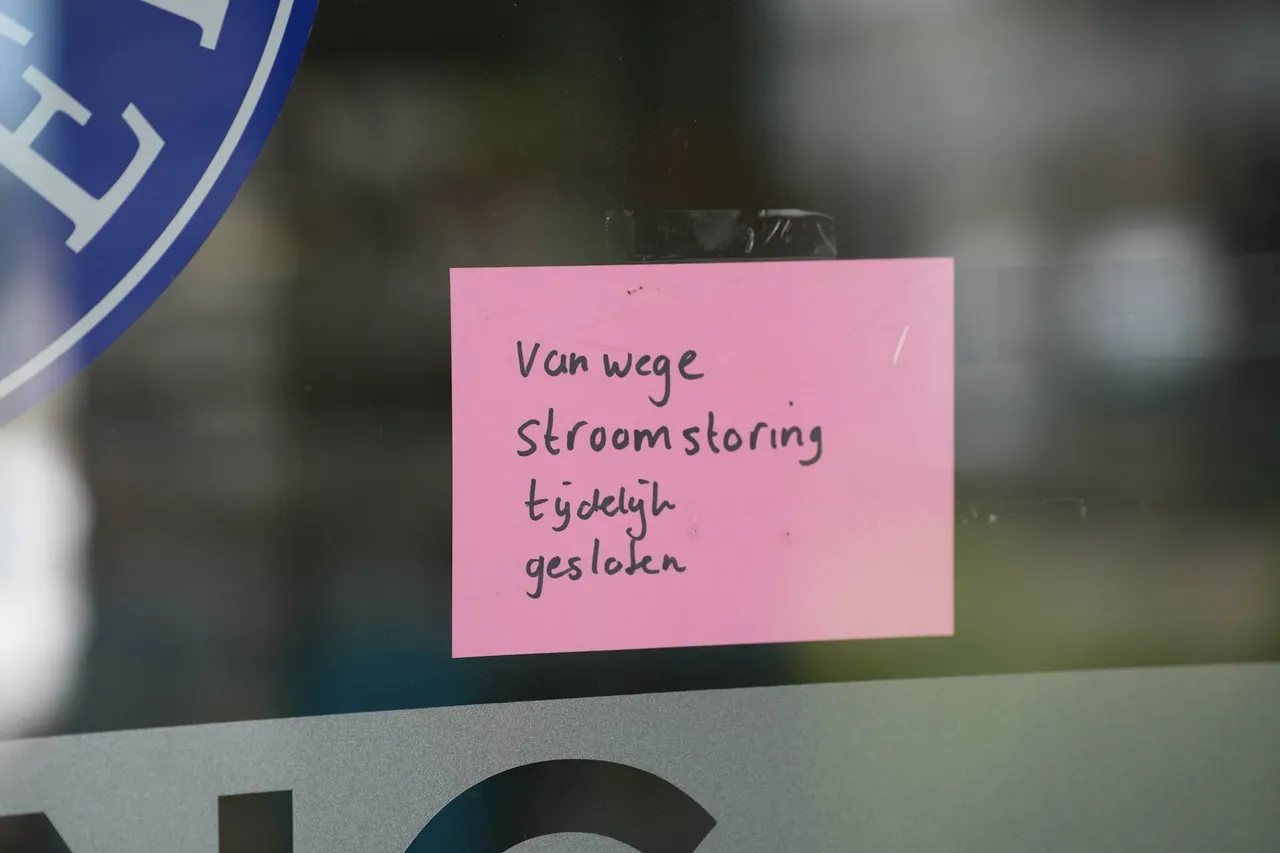 Van wege
stroomstoring
tijdelijk
gesloten